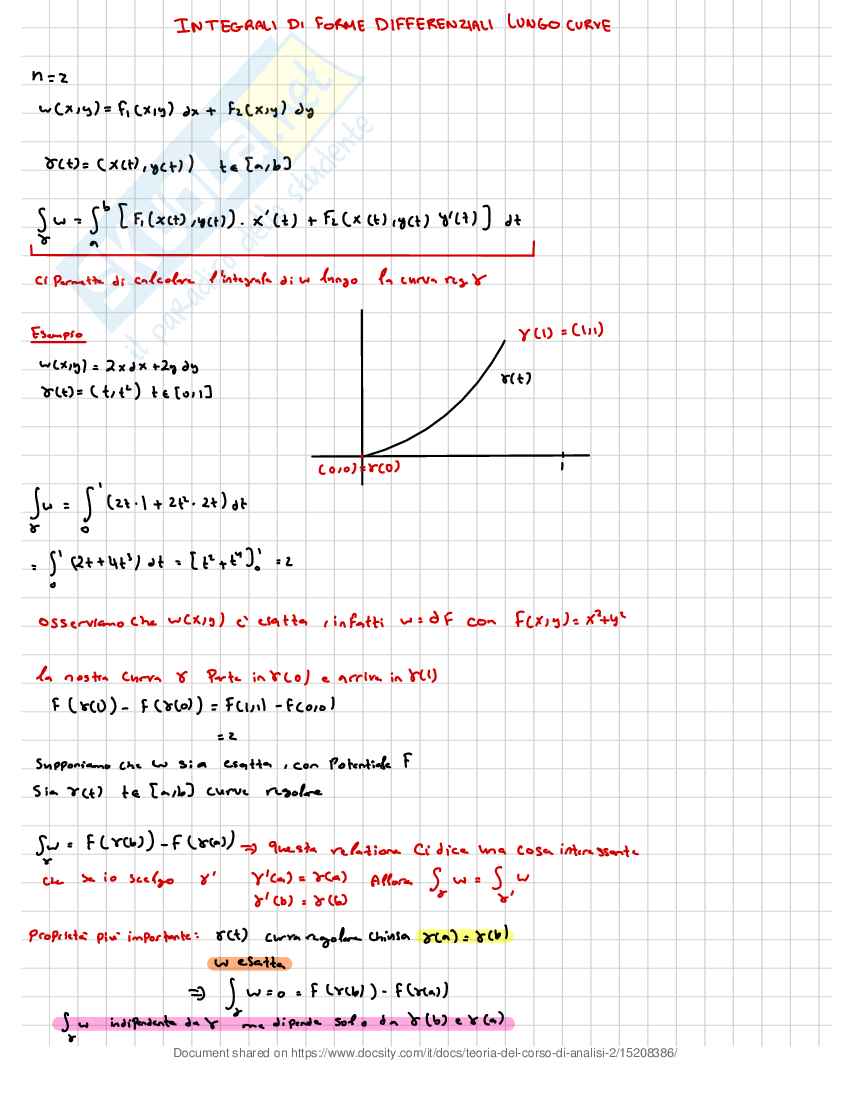 INTEGRALI DI FORME DIFFERENZIALI LUNGO CURVE
n=2
w(x,y) = F₁(x,y) dx + F₂(x,y) dy
γ(t) = (x(t), y(t)) t ∈ [a,b]
∫_γ w = ∫_a^b [F₁(x(t),y(t)) · x'(t) + F₂(x(t),y(t) y'(t)] dt
Ci permette di calcolare l'integrale di w lungo la curva reg γ
Esempio
w(x,y) = 2x dx + 2y dy
γ(t) = (t, t²) t ∈ [0,1]
γ(1) = (1,1)
γ(t)
(0,0) = γ(0)
1
∫_γ w = ∫_0^1 (2t · 1 + 2t² · 2t) dt
= ∫_0^1 (2t + 4t³) dt = [t² + t⁴]_0^1 = 2
osserviamo che w(x,y) è esatta, infatti w = dF con F(x,y) = x²+y²
la nostra curva γ parte in γ(0) e arriva in γ(1)
F(γ(1)) - F(γ(0)) = F(1,1) - F(0,0)
= 2
Supponiamo che w sia esatta, con Potenziale F
Sia γ(t) t ∈ [a,b] curva regolare
∫_γ w = F(γ(b)) - F(γ(a)) ⇒ questa relazione ci dice una cosa interessante
che se io scelgo γ' γ'(a) = γ(a) Allora ∫_γ w = ∫_γ' w
γ'(b) = γ(b)
Proprietà più importante: γ(t) curva regolare chiusa γ(a) = γ(b)
w esatta
⇒ ∫_γ w = 0 = F(γ(b)) - F(γ(a))
∫_γ w indipendente da γ ma dipende solo da γ(b) e γ(a)
Document shared on https://www.docsity.com/it/docs/teoria-del-corso-di-analisi-2/15208386/
Skuola.net
il paradiso dello studente